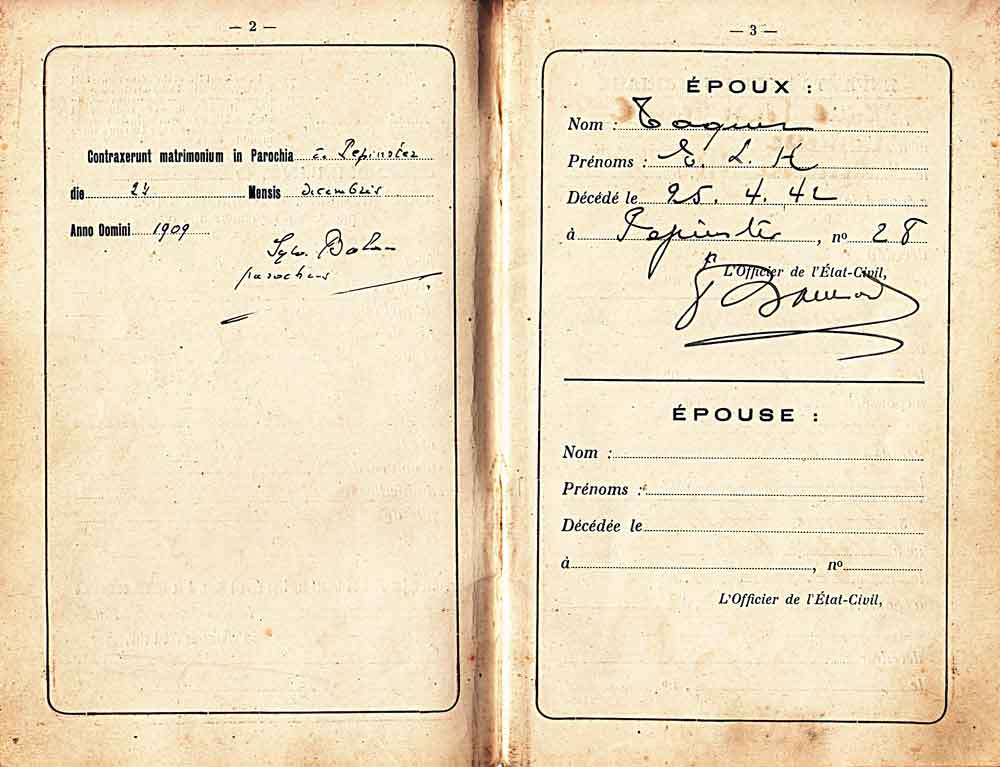 — 2 —
Contraxerunt matrimonium in Parochia Pepinster
die Mensis decembris
Anno Domini 1909
parochus
— 3 —
ÉPOUX :
Nom :
Prénoms : E. L. H
Décédé le 25. 4. 42
à Pepinster, nº 28
L'Officier de l'État-Civil,
ÉPOUSE :
Nom :
Prénoms :
Décédée le
à , nº
L'Officier de l'État-Civil,